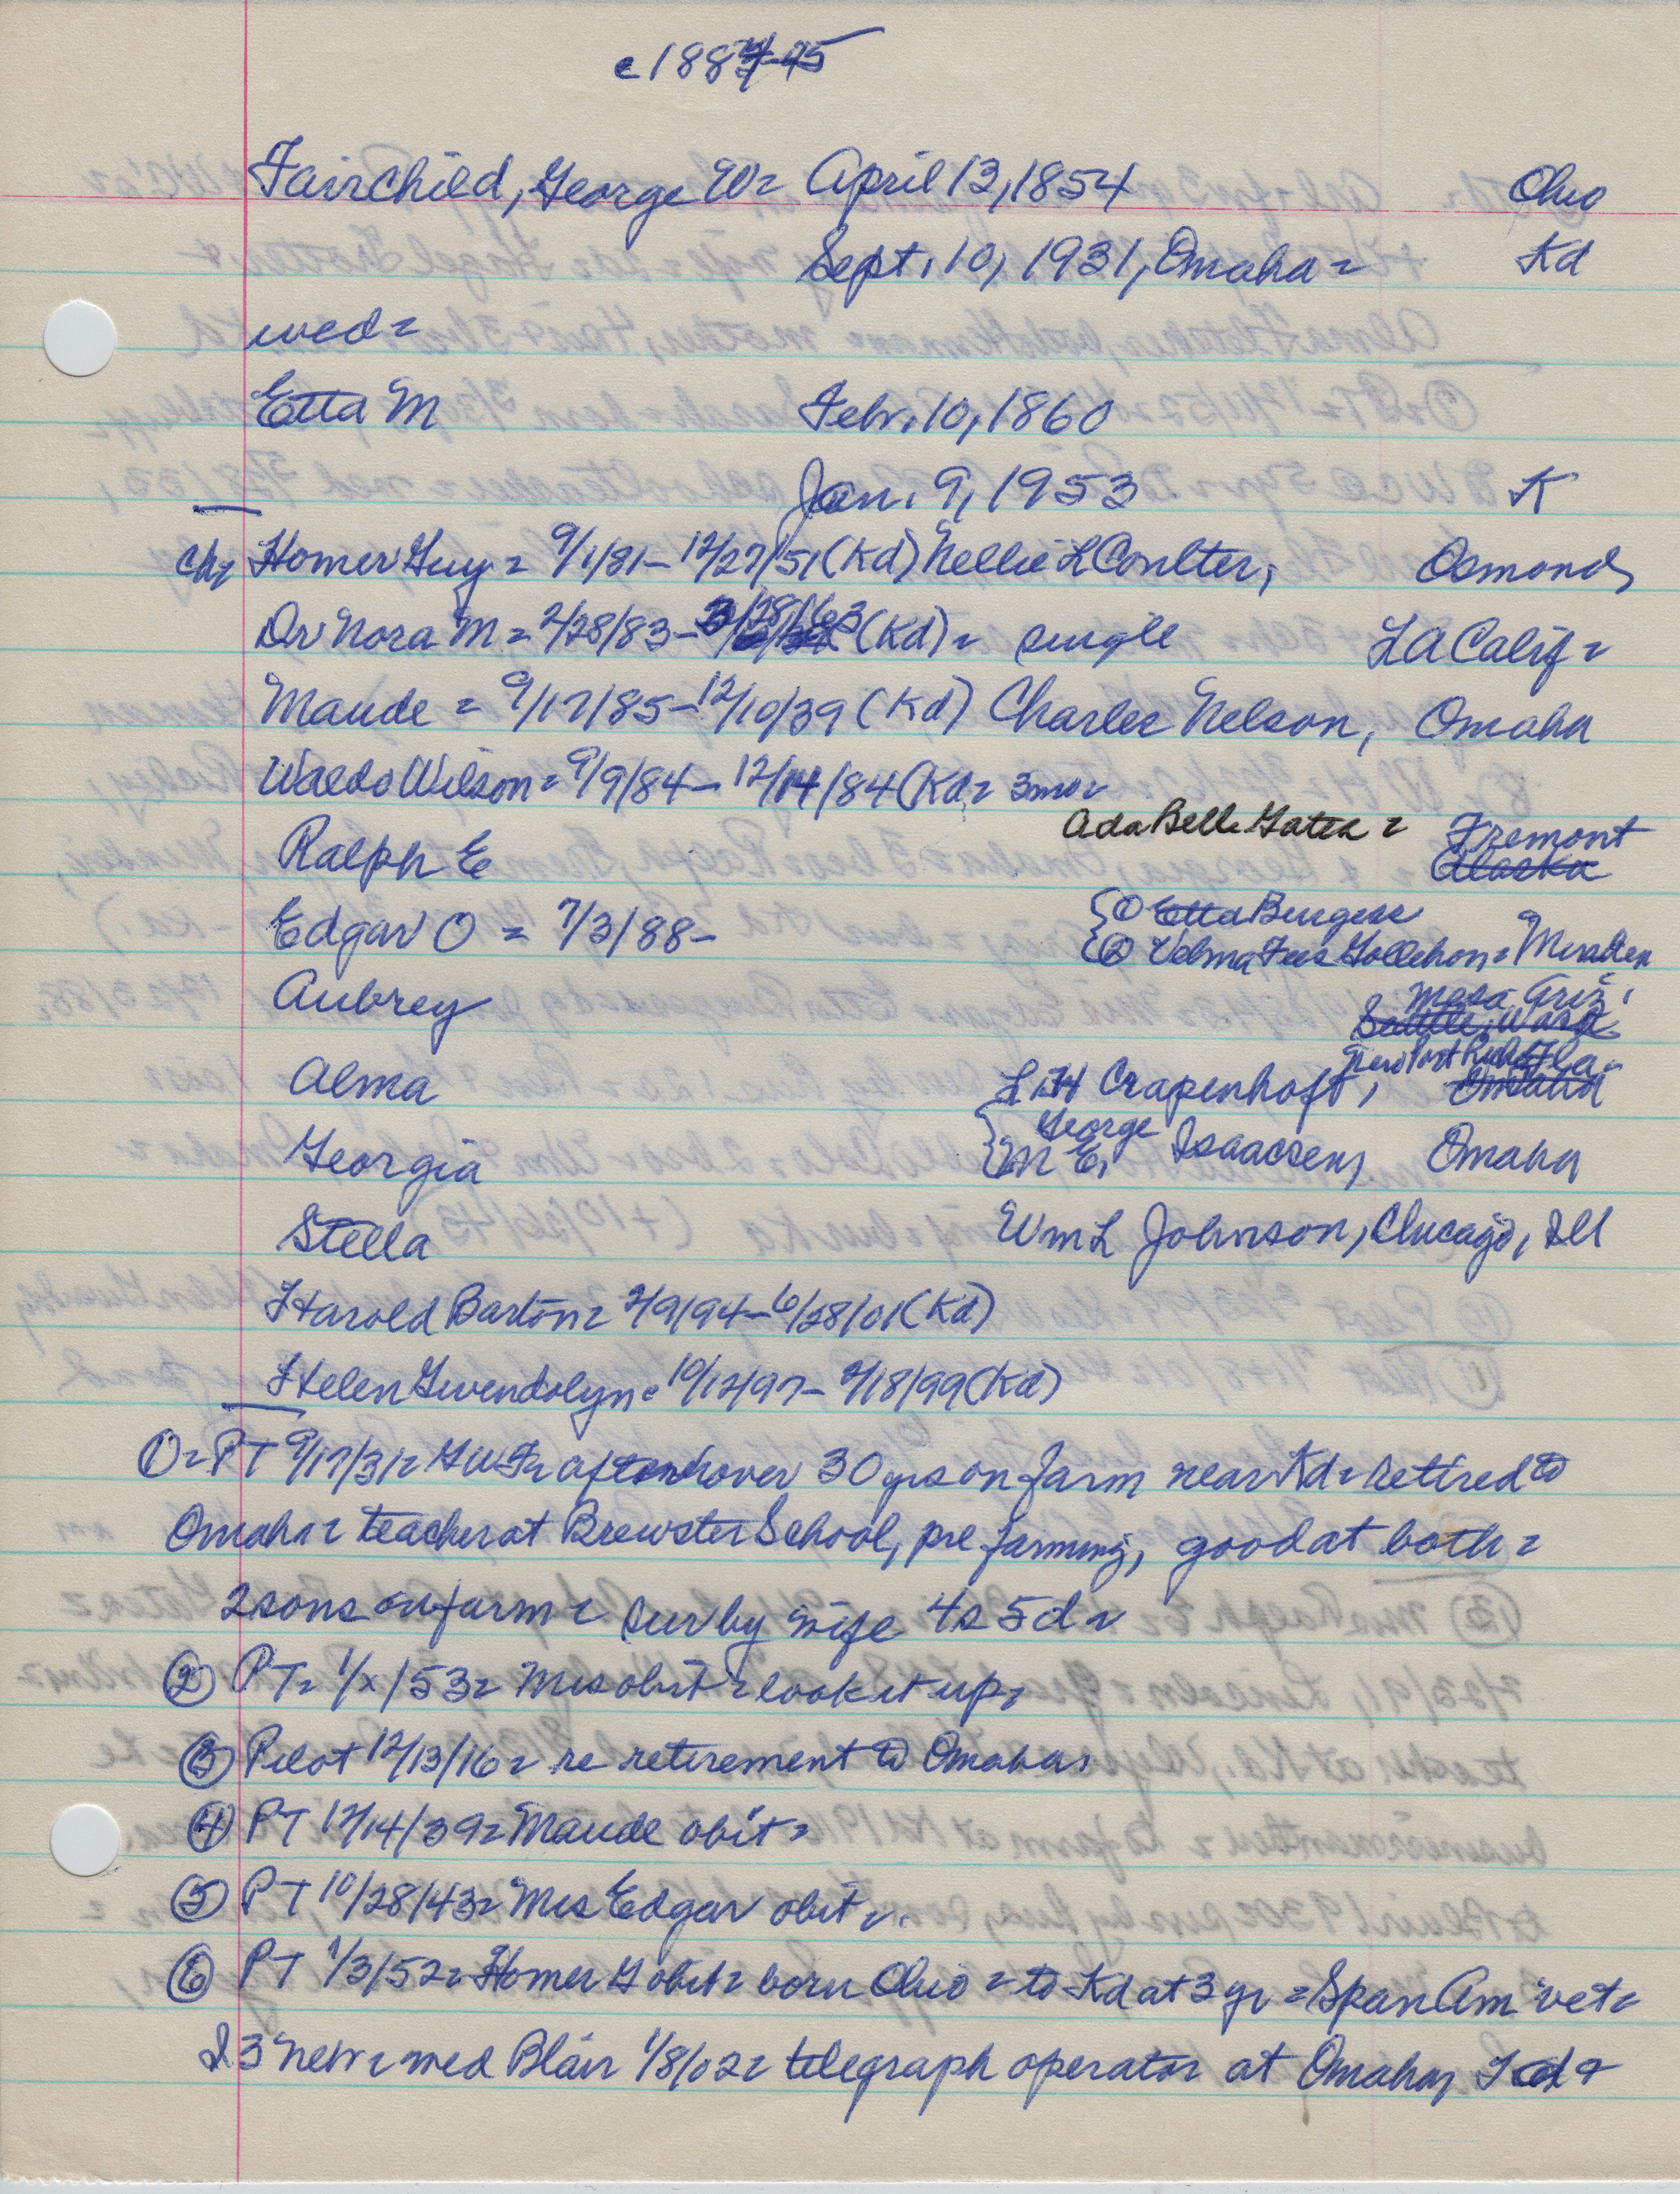 c1884-85
Fairchild, George W= April 13, 1854 Ohio
Sept. 10, 1931, Omaha= Kd
wed=
Etta M Febr. 10, 1860
Jan. 9, 1953 K
Ch= Homer Guy= 9/1/81-12/27/51 (Kd) Nellie L Coulter, Osmond,
Dr Nora M= 2/28/83-3/28/63 (Kd)= single LA Calif=
Maude = 9/17/85-12/10/39 (Kd) Charles Nelson, Omaha
Waldo Wilson= 9/9/84-12/14/84 (Kd= 3mo=
Ada Belle Gates= Fremont
Ralph E Alaska
① Etta Burgess
Edgar O = 7/3/88-
② Velma Fees Gollehon= Minden
Mesa Ariz,
Aubrey Seattle, Wash
New Port Richey Fla.
Alma L H Crapenhoft, Omaha
George
Georgia M E, Isaacsen, Omaha
Stella Wm L Johnson, Chicago, Ill
Harold Barton= 2/9/94-6/28/01 (Kd)
Helen Gwendolyn= 10/12/97-2/18/99 (Kd)
①= PT 9/17/31= GWF= after over 30 yrs on farm near Kd= retired to
Omaha= teacher at Brewster School, pre farming, good at both=
2 sons on farm= sur by wife 4s 5d=
② PT= 1/x/53= Mrs obit= look it up=
③ Pilot 12/13/16= re retirement to Omaha=
④ PT 12/14/39= Maude obit=
⑤ PT 10/28/43= Mrs Edgar obit=.
⑥ PT 1/3/52= Homer G obit= born Ohio= to Kd at 3 yr= Span Am vet=
I 3 Nebr= wed Blair 1/8/02= telegraph operator at Omaha,